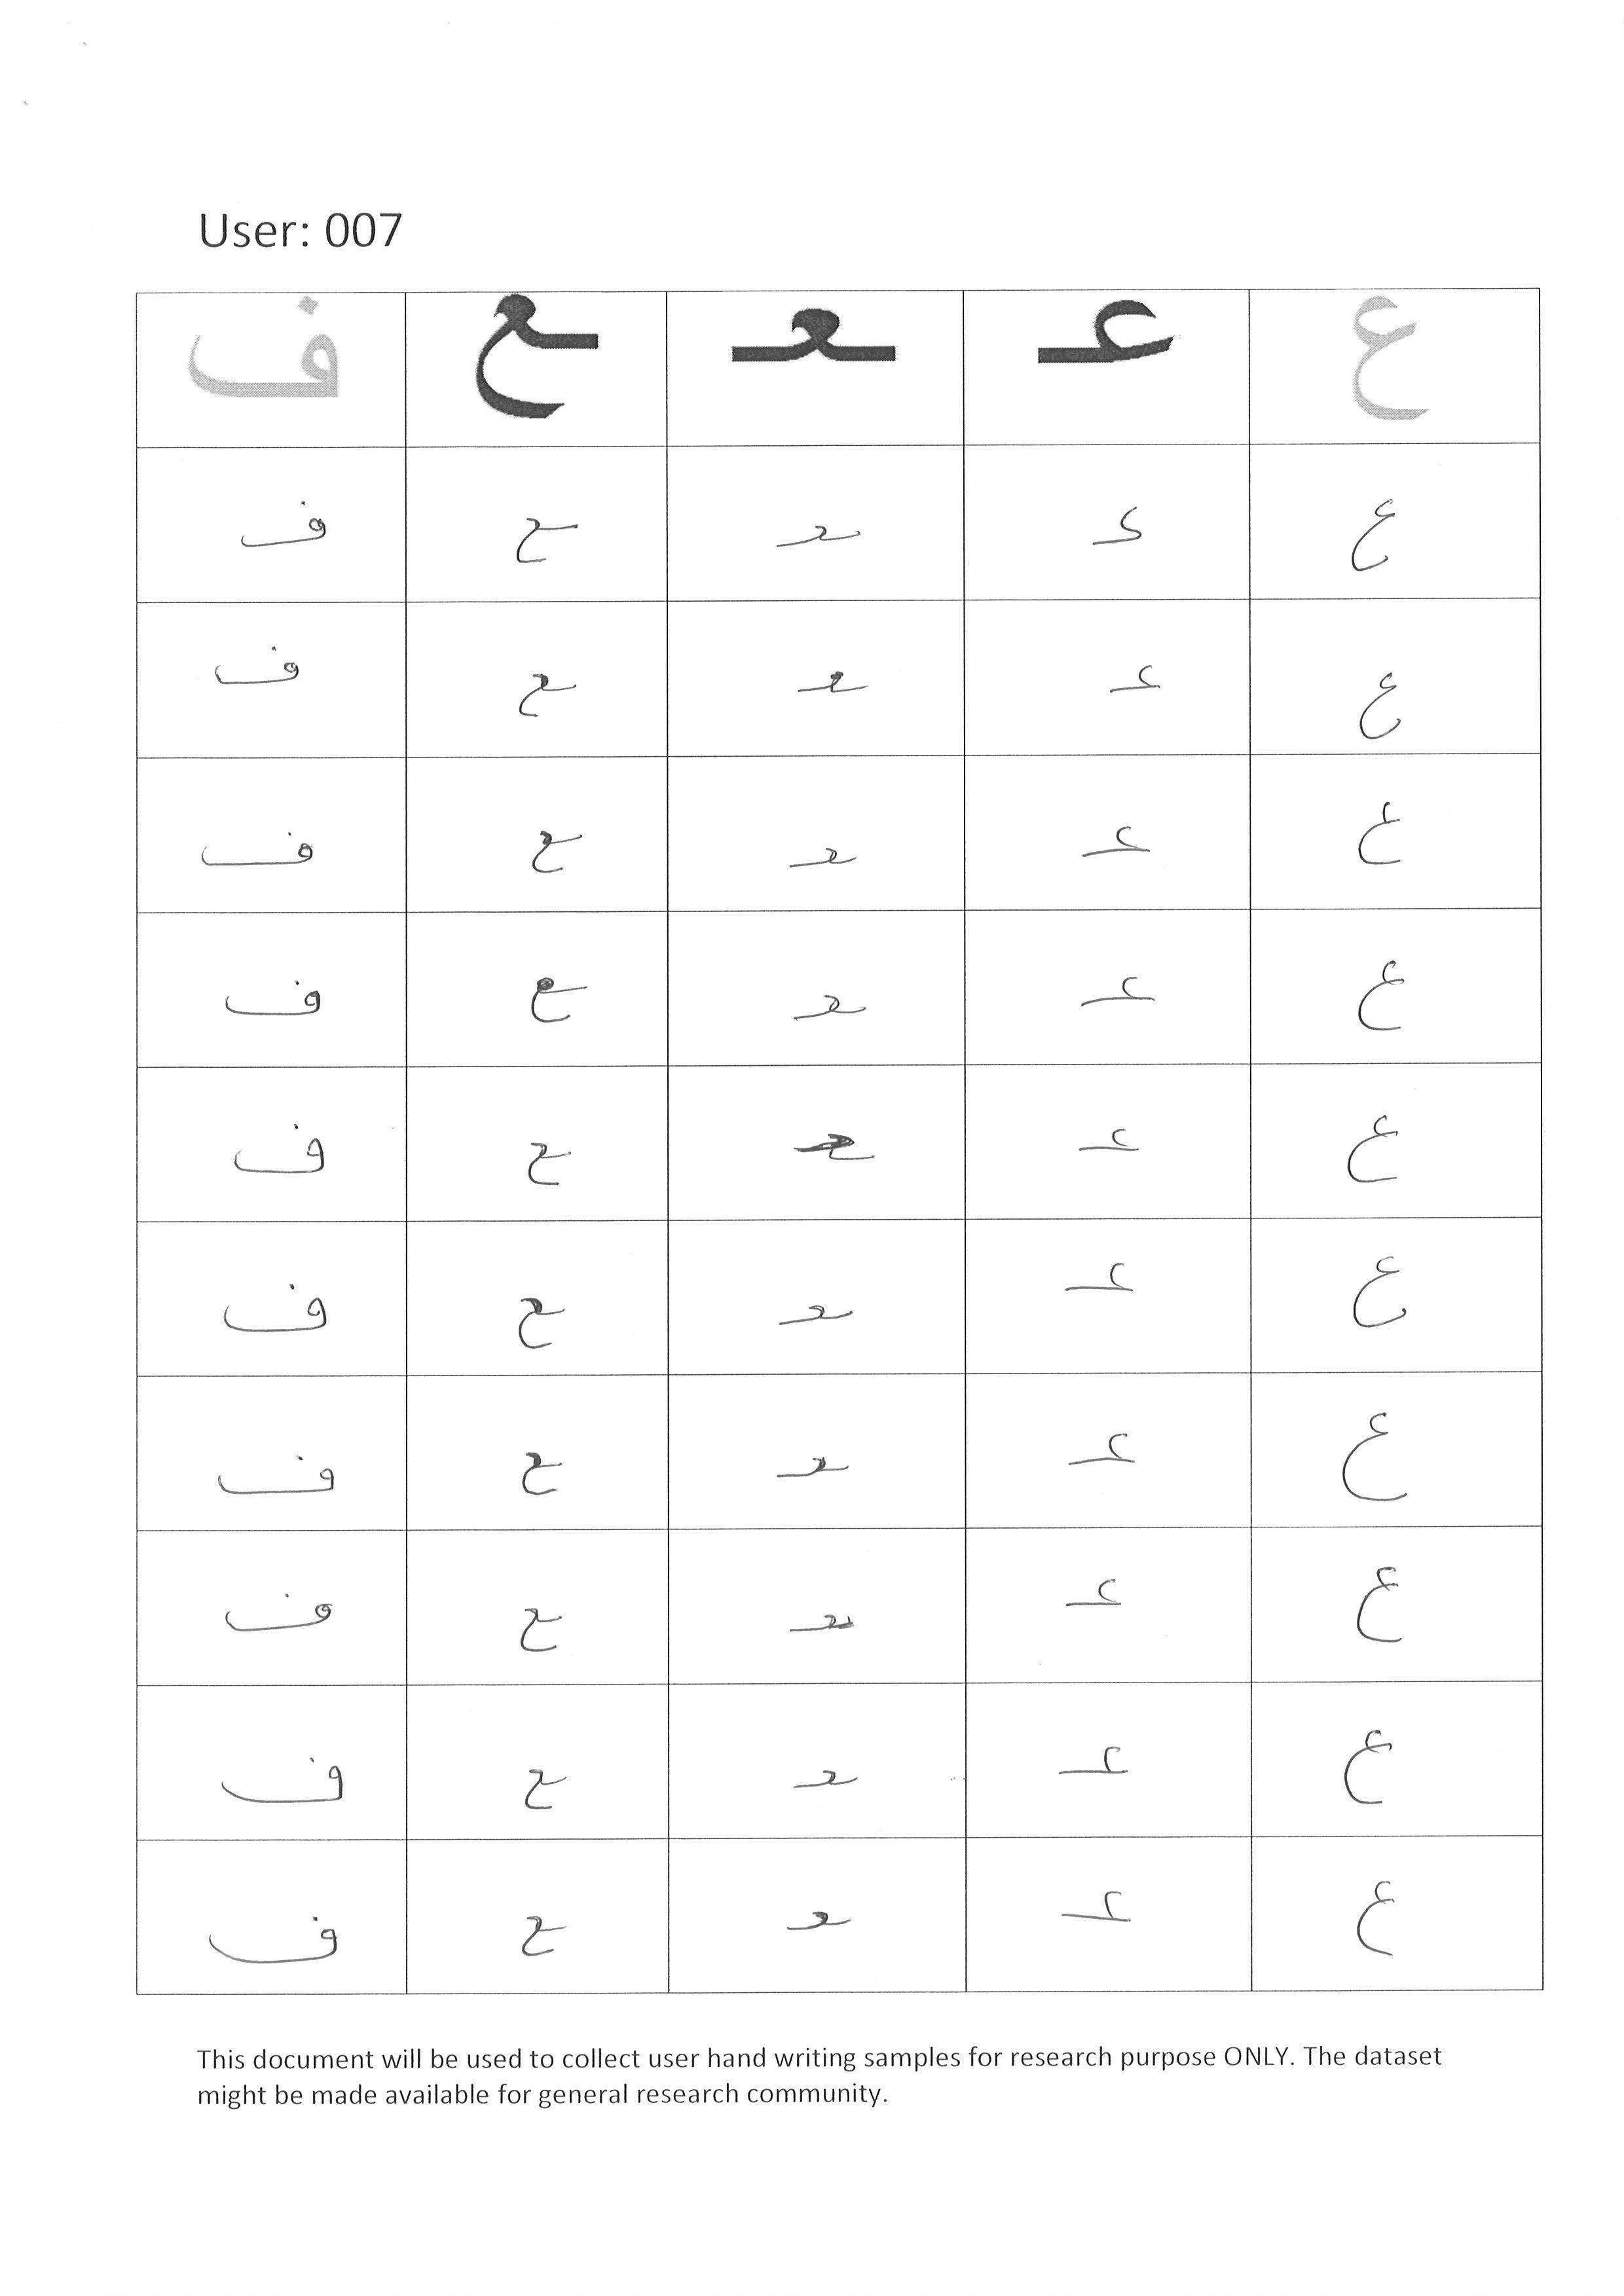 User: 007
ع عـ ـعـ ـع ف
ع عـ ـعـ ـع ف
ع عـ ـعـ ـع ف
ع عـ ـعـ ـع ف
ع عـ ـعـ ـع ف
ع عـ ـعـ ـع ف
ع عـ ـعـ ـع ف
ع عـ ـعـ ـع ف
ع عـ ـعـ ـع ف
ع عـ ـعـ ـع ف
ع عـ ـعـ ـع ف
This document will be used to collect user hand writing samples for research purpose ONLY. The dataset
might be made available for general research community.